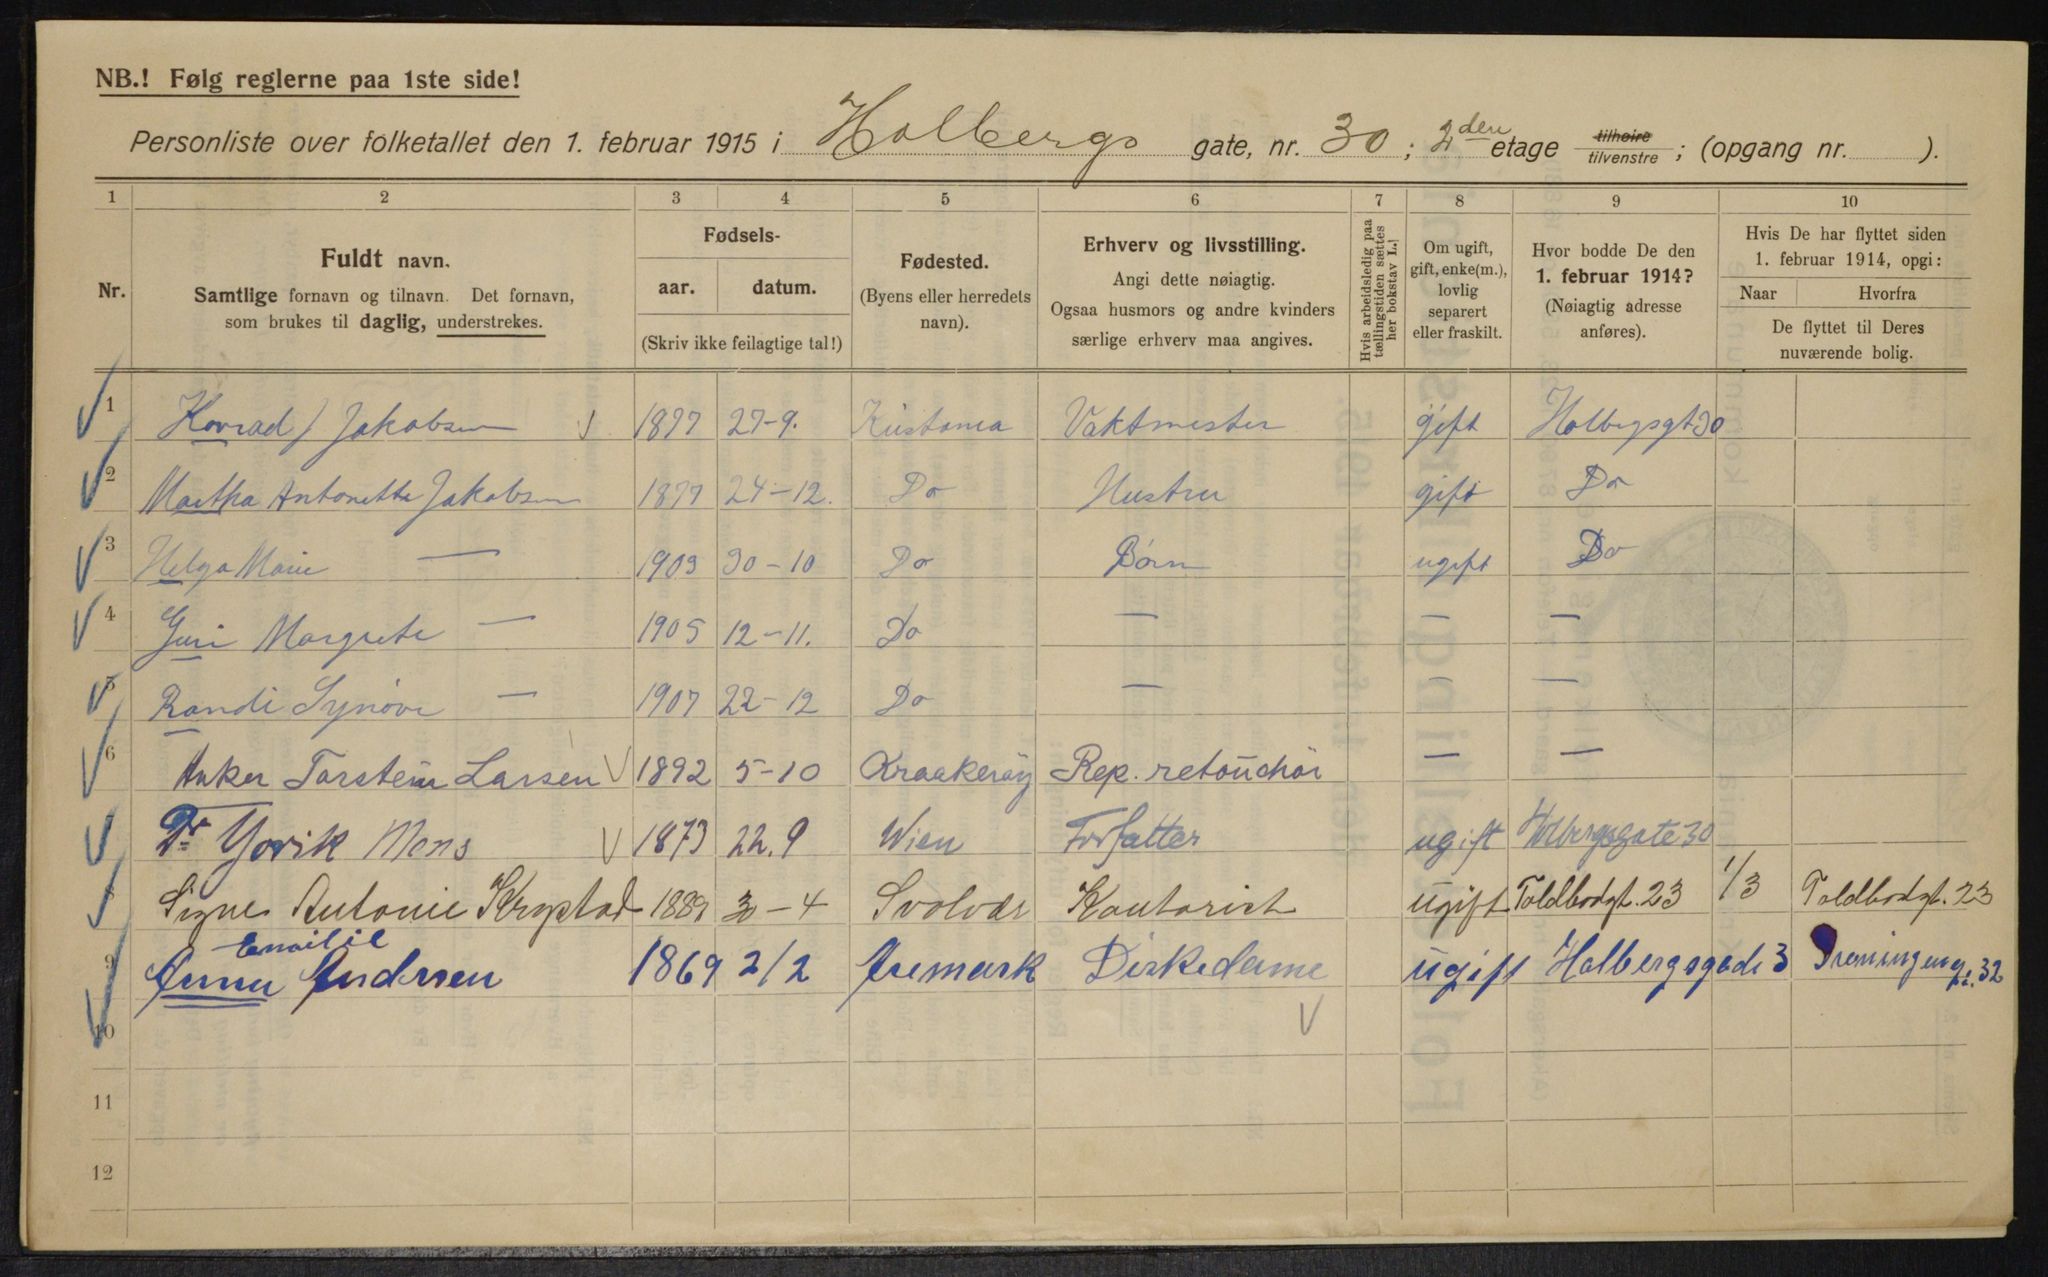 NB.! Følg reglerne paa 1ste side!
Personliste over folketallet den 1. februar 1915 i Holbergs gate, nr. 30; 2den etage tilhøire tilvenstre; (opgang nr. ).
1 2 3 4 5 6 7 8 9 10
Nr.
Fuldt navn.
Samtlige fornavn og tilnavn. Det fornavn,
som brukes til daglig, understrekes.
Fødsels-
aar. datum.
(Skriv ikke feilagtige tal!)
Fødested.
(Byens eller herredets
navn).
Erhverv og livsstilling.
Angi dette nøiagtig.
Ogsaa husmors og andre kvinders
særlige erhverv maa angives.
Hvis arbeidsledig paa
tællingstiden sættes
her bokstav L.
Om ugift,
gift, enke(m.),
lovlig
separert
eller fraskilt.
Hvor bodde De den
1. februar 1914?
(Nøiagtig adresse
anføres).
Hvis De har flyttet siden
1. februar 1914, opgi:
Naar Hvorfra
De flyttet til Deres
nuværende bolig.
1 Konrad J Jakobsen 1877 27-9. Kristania Vaktmester gift Holbergsgt 30
2 Martha Antonette Jakobsen 1877 24-12. Do Hustru gift Do
3 Helga Marie — 1903 30-10 Do Børn ugift Do
4 Guri Margrete — 1905 12-11. Do — — —
5 Randi Synøve — 1907 22-12 Do — — —
6 Anker Torstein Larsen 1892 5-10 Kraakerøy Rep. retouchör — —
Dr Yorik Mens 1873 22.9 Wien Forfatter ugift Holbergsgate 30
8 Signe Antonie Krystad 1889 30-4 Svolvær Kontorist ugift Toldbodgt. 23 1/3 Toldbodgt. 23
Emilie
9 Anna Andersen 1869 2/2 Aremark Diskedame ugift Holbergsgade 3 32
10
11
12